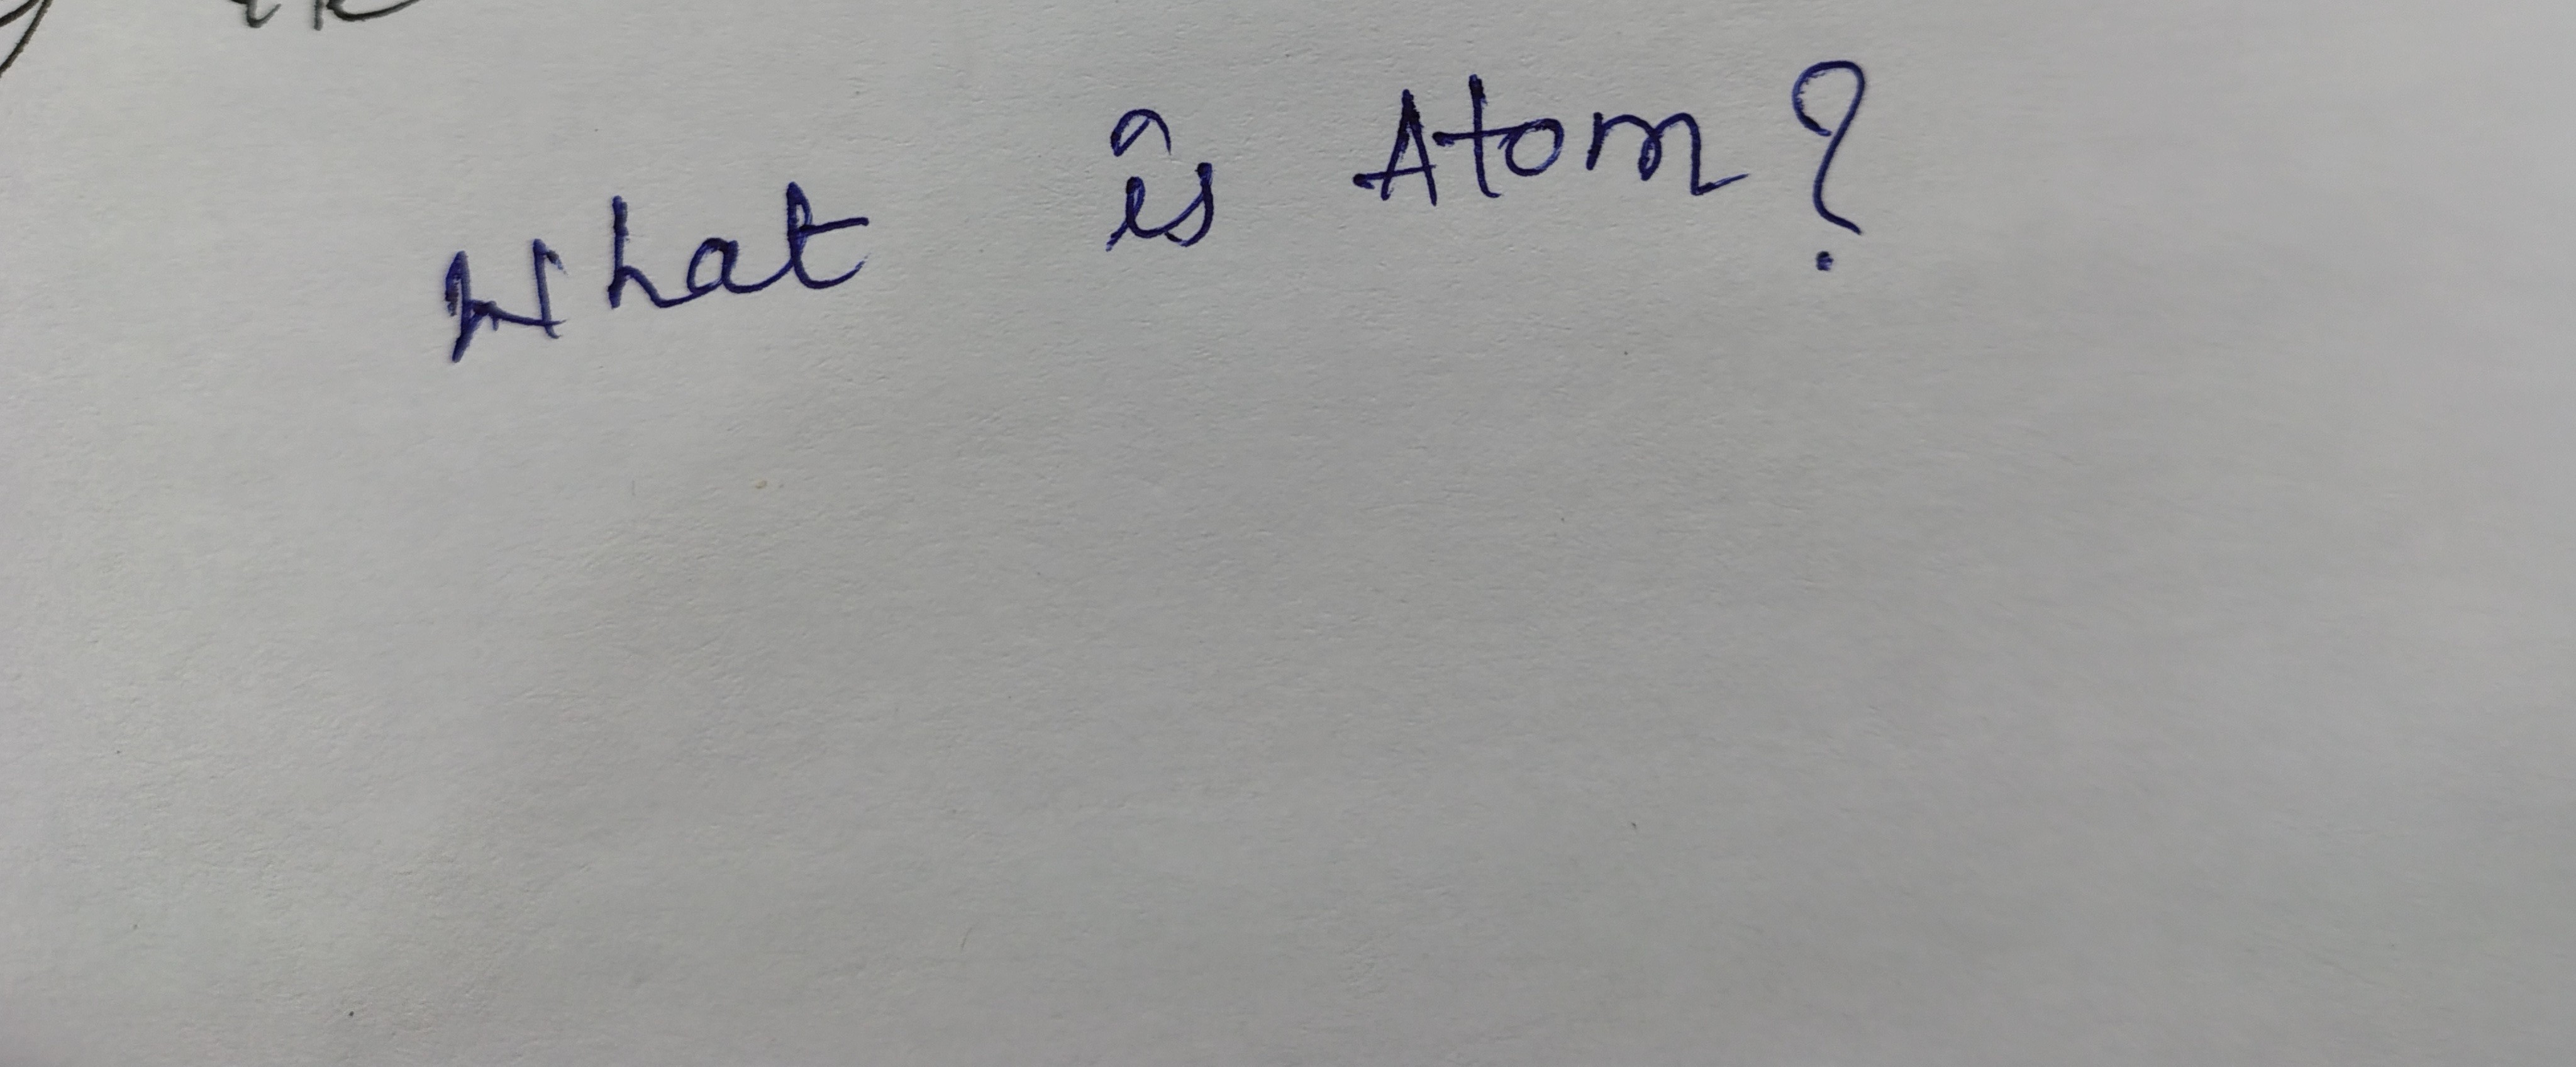 What is Atom?